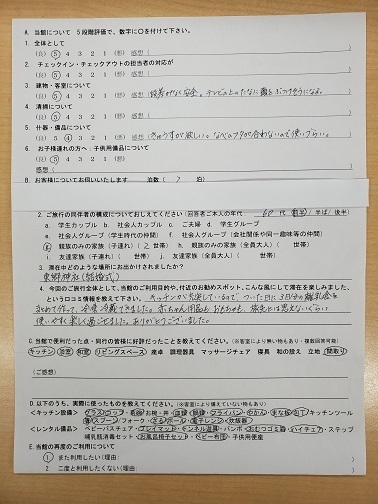 A. 当館について 5段階評価で、数字に○を付けて下さい。
1. 全体として
(良) 5 4 3 2 1 (悪) 感想 ( )
2. チェックイン・チェックアウトの担当者の対応が
(良) 5 4 3 2 1 (悪) 感想 ( )
3. 建物・客室について
(良) 5 4 3 2 1 (悪) 感想 (
4. 清掃について
(良) 5 4 3 2 1 (悪) 感想 ( )
5. 什器・備品について
(良) 5 4 3 2 1 (悪) 感想 (きゅうすが欲しい。なべのフタが合わないので使いづらい。)
6. お子様連れの方へ:子供用備品について
(良) 5 4 3 2 1 (悪)
感想 ( )
B. お客様についてお伺いいたします 泊数 ( 泊)
2. ご旅行の同伴者の構成についておしえてください (回答者ご本人の年代 60 代 前半 / 半ば / 後半)
a. 学生カップル b. 社会人カップル c. ご夫婦 d. 学生グループ
e. 社会人グループ (学生時代の仲間) f. 社会人グループ (会社関係や同一趣味等の仲間)
g. 親族のみの家族 (子連れ) ( 2 世帯) h. 親族のみの家族 (全員大人) ( 世帯)
i. 友達家族 (子連れ) ( 世帯) j. 友達家族 (全員大人) ( 世帯)
3. 滞在中どのような場所にお出かけされましたか?
東郷神社 (結婚式)
4. 今回のご旅行全体として、当館のご利用目的や、付近のお勧めスポット、こんな風にして滞在を楽しみました、
という口コミ情報を教えて下さい。 キッチンが充実しているので、ついた日に3日分の離乳食を
まとめて作って、冷凍 できました。赤ちゃん用品も おもちゃも、
使いやすく楽しく過ごせました。ありがとうございました。
C. 当館で便利だった点・同行の皆様に好評だったことを教えてください。
キッチン 浴室 和室 リビングスペース 食器 調理器具 マッサージチェア 寝具 和の設え 立地 間取り
(ご感想)
D. 以下のうち、実際に使ったものを教えてください。
<キッチン設備> グラス コップ・ お椀・丼 フライパン・やかん まな板 包丁 キッチンツール
スプーン/フォーク ざる ボール 電子レンジ 炊飯器
<レンタル備品> ベビーバスチェア・プレイマット おむつゴミ箱 ハイチェア・ステップ
哺乳瓶消毒セット お風呂椅子セット ベビー布団 子供用便座
E. 当館の再度のご利用について
1 また利用したい (理由: )
2 二度と利用したくない (理由: )